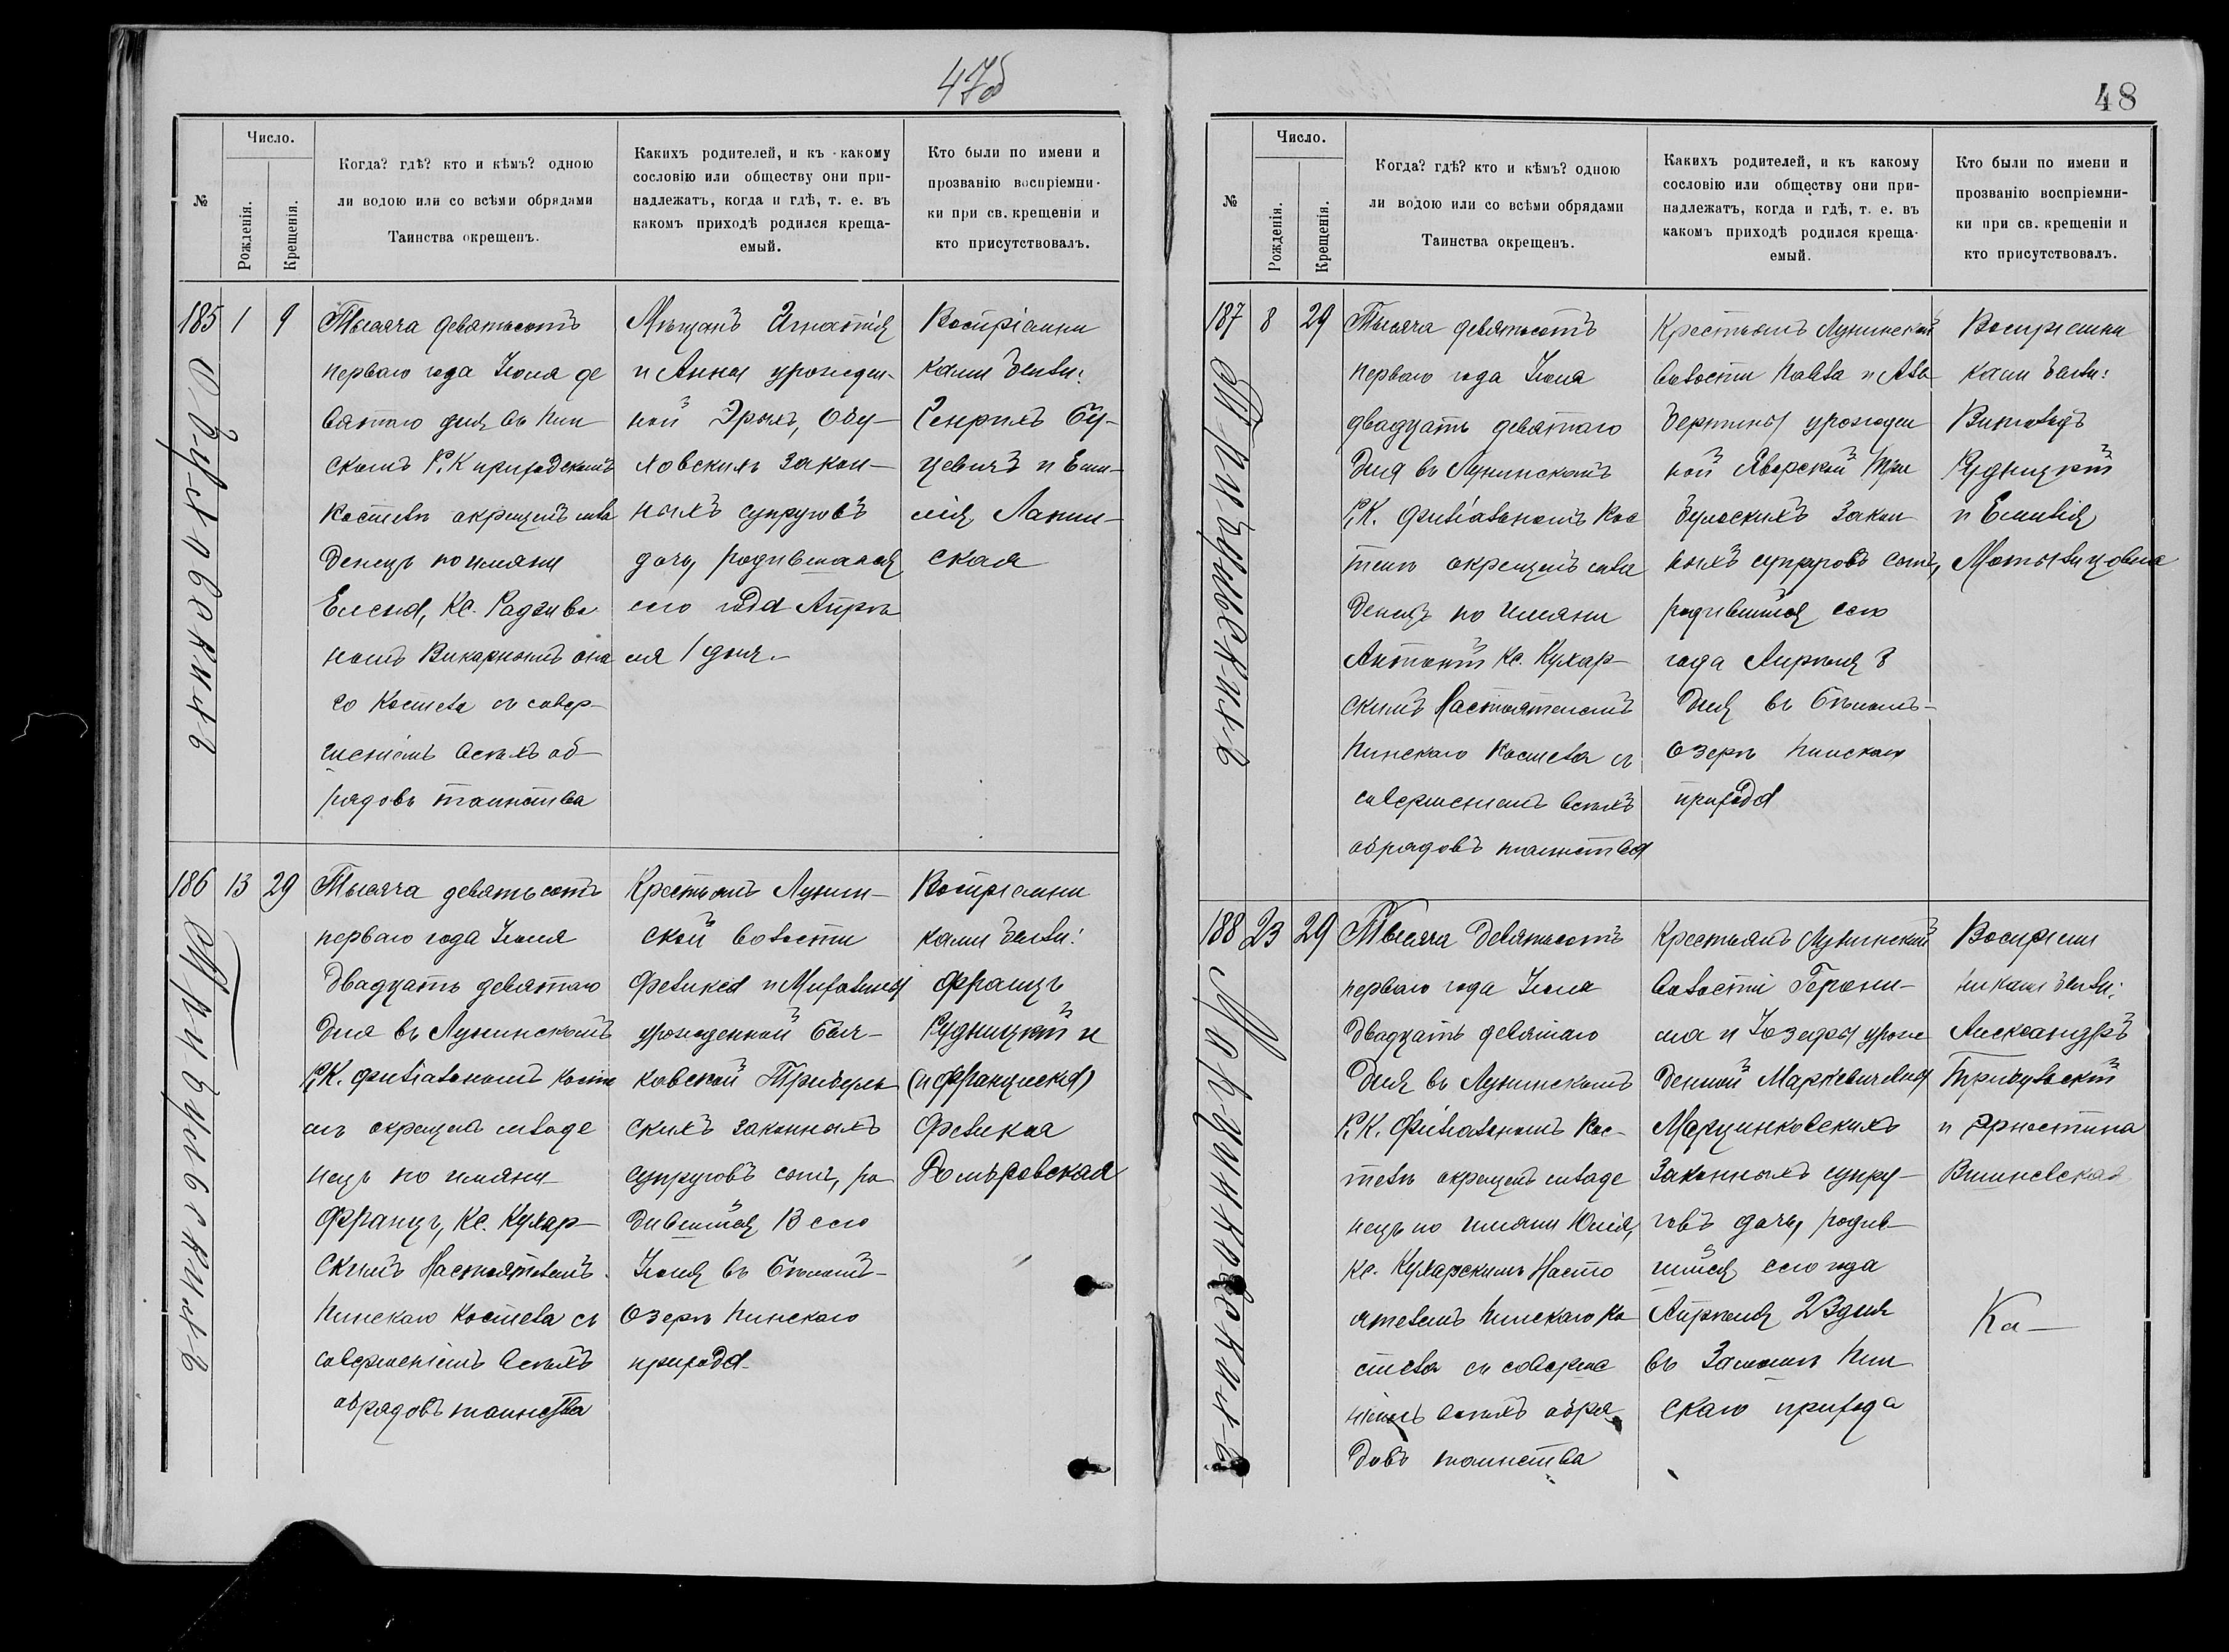 47об
№
Число.
Рожденія.
Крещенія.
Когда? гдѣ? кто и кѣмъ? одною
ли водою или со всѣми обрядами
Таинства окрещенъ.
Какихъ родителей, и къ какому
сословію или обществу они при-
надлежатъ, когда и гдѣ, т. е. въ
какомъ приходѣ родился креща-
емый.
Кто были по имени и
прозванію воспріемни-
ки при св. крещеніи и
кто присутствовалъ.
185
1
9
Обуховскихъ
Тысяча девятьсотъ
перваго года Іюля де
вятаго дня въ Пин
скомъ Р. К приходскомъ
Костелѣ окрещенъ мла
денецъ по имяни
Елена, Кс. Радзиво
номъ Викарнымъ она
го Костела съ совер-
шеніемъ всѣхъ об-
рядовъ таинства
Мѣщанъ Игнатія
и Анны урожден-
ной Эрыхъ, Обу-
ховскихъ закон-
ныхъ супруговъ
дочь, родившаяся
сего года Апрѣ
ля 1 дня.-
Воспріемни
ками были:
Генрихъ Бу-
цевичъ и Еми-
лія Лапин-
ская
186
13
29
Трибульскихъ
Тысяча девятьсотъ
перваго года Іюля
двадцать девятаго
дня въ Лунинскомъ
Р. К. филіальномъ косте
лѣ окрещенъ младе
нецъ по имяни
Францъ, Кс. Кухар-
скимъ Настоятелемъ
Пинскаго Костела съ
совершеніемъ всѣхъ
обрядовъ таинства
Крестьянъ Лунин-
ской волости
Феликса и Михалины
урожденной Бал-
ковской Трибуль
скихъ законныхъ
супруговъ сынъ, ро
дившійся 13 сего
Іюля въ Бѣломъ-
Озерѣ Пинскаго
прихода
Воспріемни
ками были:
Францъ
Рудницкій и
(и Франциска)
Феликса
Домбровская
48
№
Число.
Рожденія.
Крещенія.
Когда? гдѣ? кто и кѣмъ? одною
ли водою или со всѣми обрядами
Таинства окрещенъ.
Какихъ родителей, и къ какому
сословію или обществу они при-
надлежатъ, когда и гдѣ, т. е. въ
какомъ приходѣ родился креща-
емый.
Кто были по имени и
прозванію воспріемни-
ки при св. крещеніи и
кто присутствовалъ.
187
8
29
Трибульскихъ
Тысяча девятьсотъ
перваго года Іюля
двадцать девятаго
дня въ Лунинскомъ
Р. К. филіальномъ Кос
телѣ окрещенъ мла
денецъ по имяни
Антоній Кс. Кухар-
скимъ Настоятелемъ
Пинскаго Костела съ
совершеніемъ всѣхъ
обрядовъ таинства
Крестьянъ Лунинской
волости Павла и Аль
бертины урожден
ной Яворской Три
бульскихъ закон
ныхъ супруговъ сынъ,
родившійся сего
года Апрѣля 8
дня въ Бѣломъ-
Озерѣ Пинскаго
прихода
Воспріемни
ками были:
Витольдъ
Рудницкій
и Емилія
188
23
29
Марцинковскихъ
Тысяча девятьсотъ
перваго года Іюля
двадцать девятаго
дня въ Лунинскомъ
Р. К. Филіальномъ Кос-
телѣ окрещенъ младе
нецъ по имяни Юлія,
Кс. Кухарскимъ Насто
ятелемъ Пинскаго Ко
стела съ соверше
ніемъ всѣхъ обря
довъ таинства
Крестьянъ Лунинской
волости Герони-
ма и Юзефы урож
денной
Марцинковскихъ
законныхъ супру-
говъ дочь, родив-
шійся сего года
Апрѣля 23 дня
въ Пин
скаго прихода
Воспріем
никами были:
Александръ
Трибульскій
и Эрнестина
Вишневская
Ка—